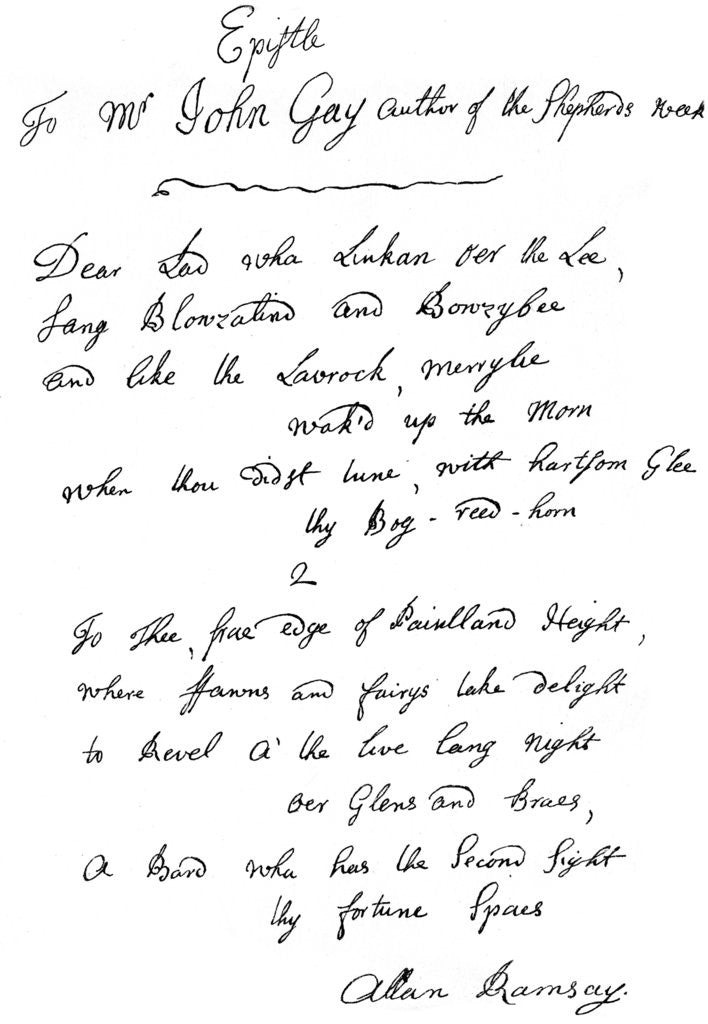 Epistle
To Mr John Gay author of the Shepherds week
Dear Lad wha Linkan oer the Lee,
Sang Blowzalind and Bowzybee
and like the Lavrock, merrylie
wak'd up the Morn
when thou didst tune, with hartsom Glee
thy Bog-reed-horn
2
To Thee, frae edge of Pentland Height,
where ffawns and fairys take delight
to Revel a' the live lang Night
oer Glens and Braes,
a Bard wha has the Second Sight
thy fortune Spaes
Allan Ramsay.